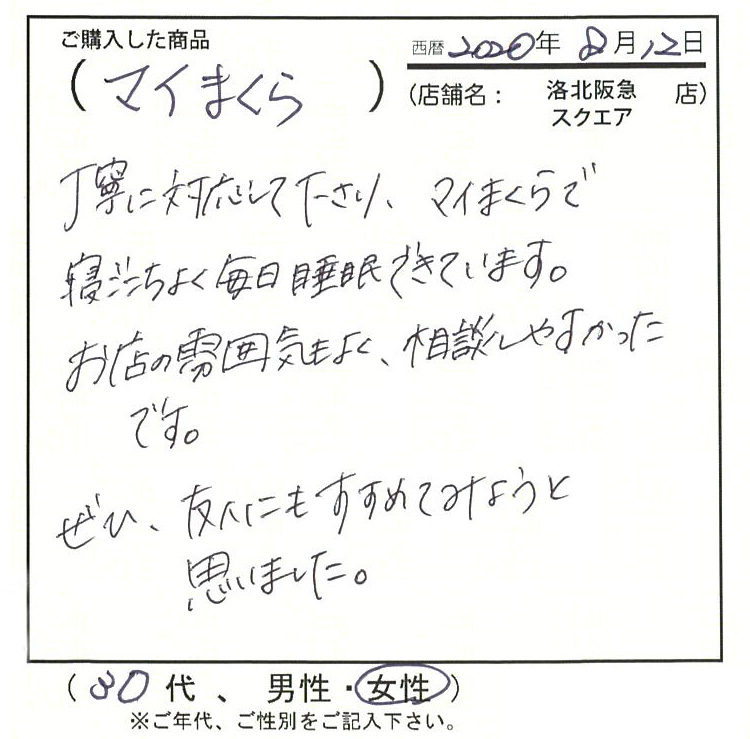 ご購入した商品
西暦 2020年 8月12日
(マイまくら)
(店舗名: 洛北阪急スクエア 店)
丁寧に対応して下さり、マイまくらで
寝ごこちよく毎日睡眠できています。
お店の雰囲気もよく、相談しやすかった
です。
ぜひ、友人にもすすめてみようと
思いました。
(30代、男性・女性)
※ご年代、ご性別をご記入下さい。